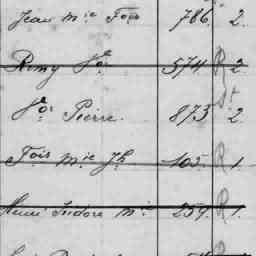 Jean Mie Fois 786. 2.
Remy Jh 574 R 2
Jh Pierre. 873 2.
Fois Mie Jh 105. R 1.
Henri Isidore Mie 259. R 1.